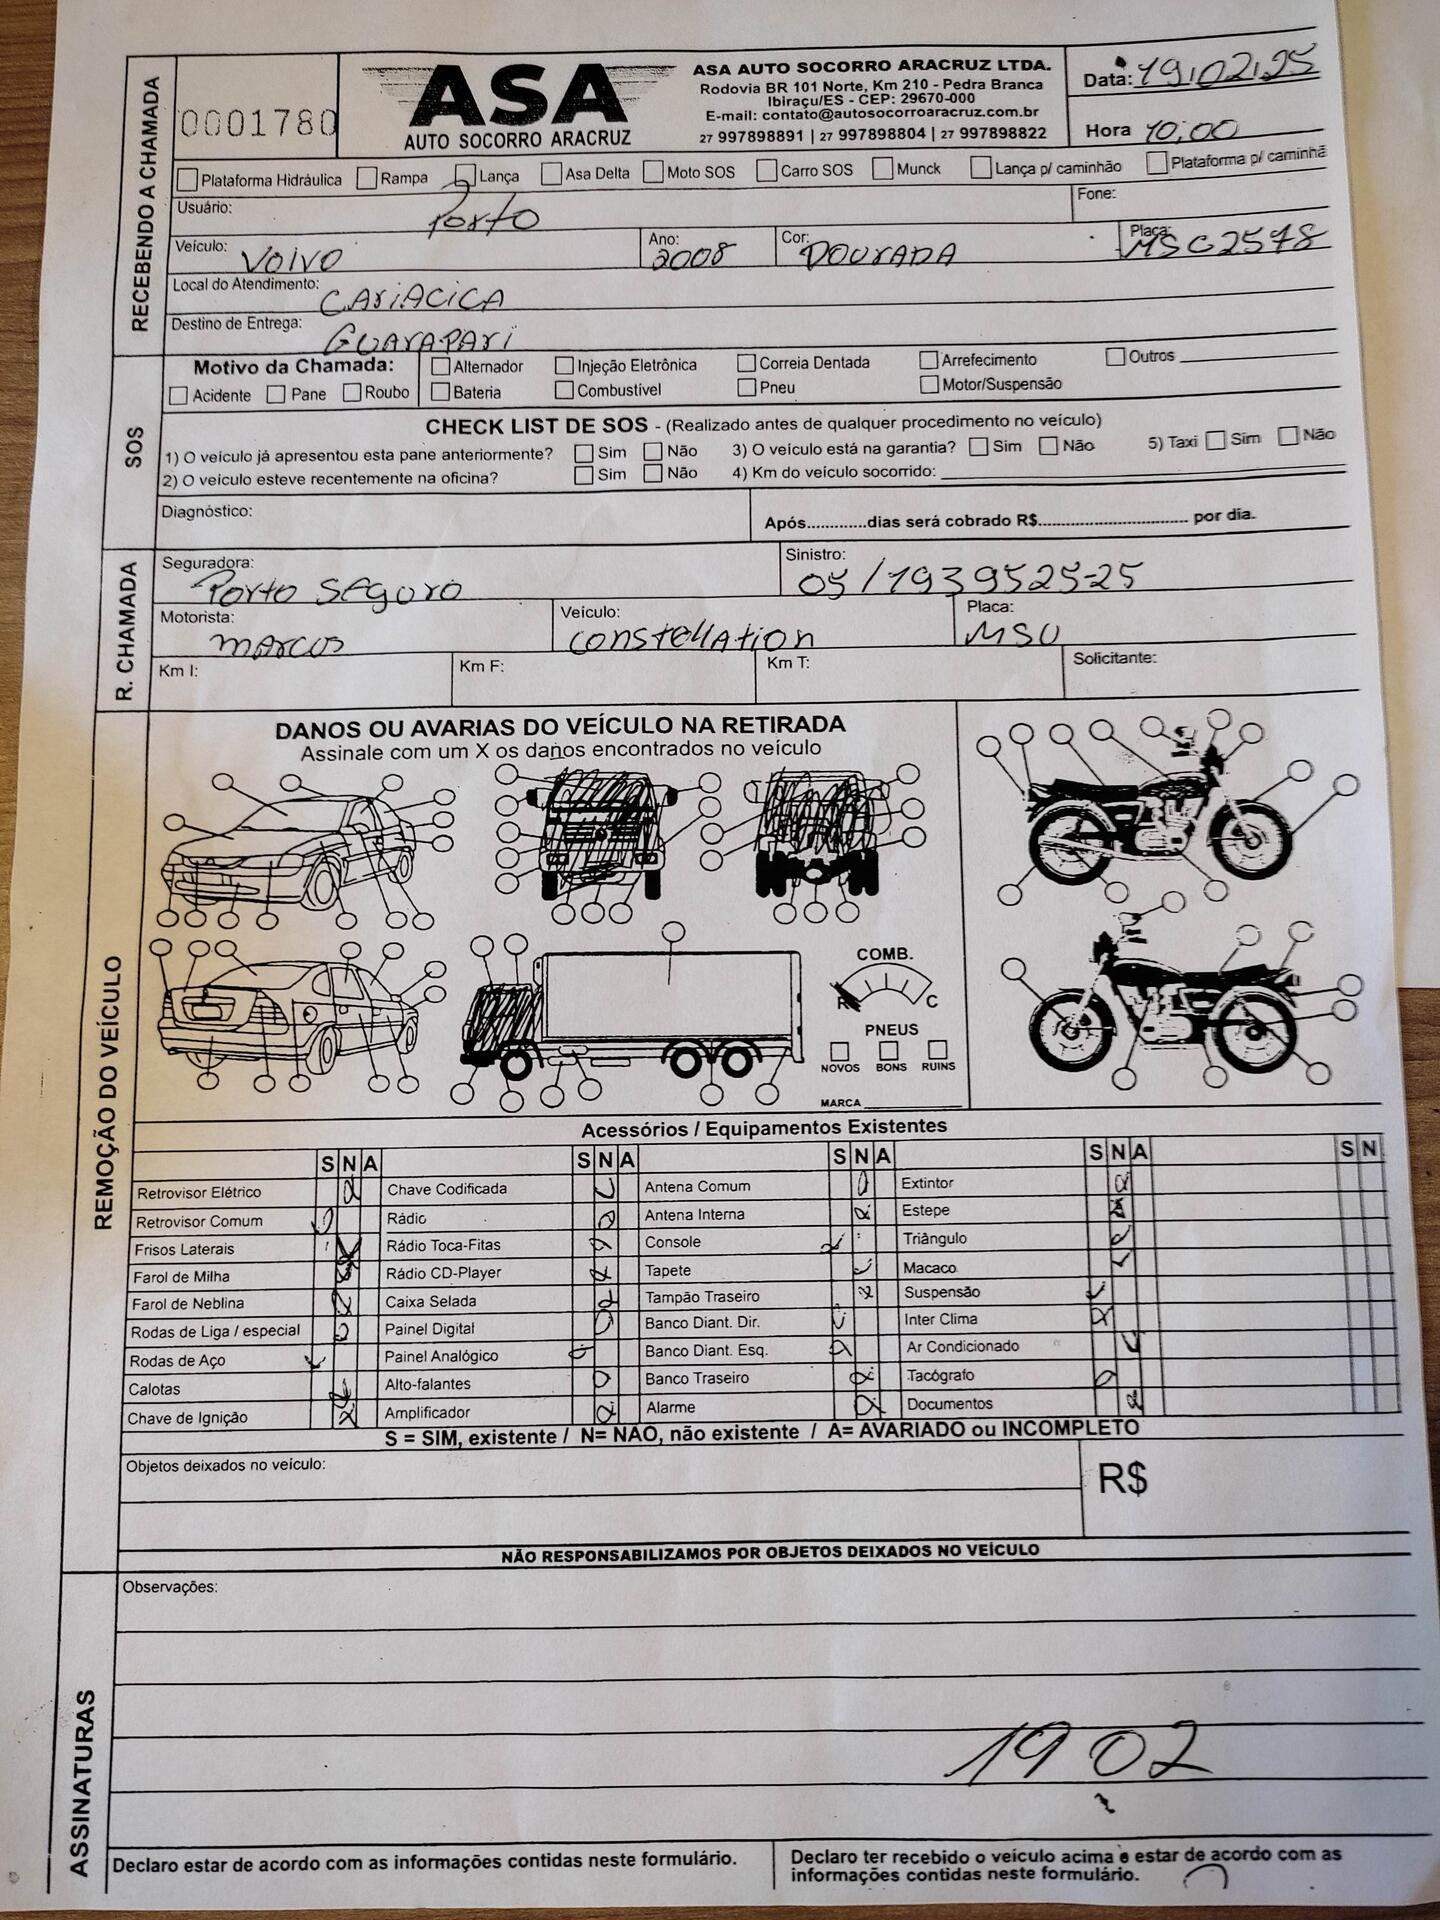 RECEBENDO A CHAMADA
0001780
ASA
AUTO SOCORRO ARACRUZ
ASA AUTO SOCORRO ARACRUZ LTDA.
Rodovia BR 101 Norte, Km 210 - Pedra Branca
Ibiraçu/ES - CEP: 29670-000
E-mail: contato@autosocorroaracruz.com.br
27 997898891 | 27 997898804 | 27 997898822
Data: 19/02/25
Hora 10:00
Plataforma Hidráulica Rampa Lança Asa Delta Moto SOS Carro SOS Munck Lança p/ caminhão Plataforma p/ caminhã
Usuário: Porto Fone:
Veículo: VOLVO Ano: 2008 Cor: DOURADA Placa: MSC2578
Local do Atendimento: CARIACICA
Destino de Entrega: GUARAPARI
SOS
Motivo da Chamada: Alternador Injeção Eletrônica Correia Dentada Arrefecimento Outros
Acidente Pane Roubo Bateria Combustível Pneu Motor/Suspensão
CHECK LIST DE SOS - (Realizado antes de qualquer procedimento no veículo)
1) O veículo já apresentou esta pane anteriormente? Sim Não 3) O veículo está na garantia? Sim Não 5) Taxi Sim Não
2) O veículo esteve recentemente na oficina? Sim Não 4) Km do veículo socorrido:
Diagnóstico: Após.............dias será cobrado R$................................ por dia.
R. CHAMADA
Seguradora: Porto Seguro Sinistro: 05/1939525-25
Motorista: MARCOS Veículo: Constellation Placa: MSU
Km I: Km F: Km T: Solicitante:
REMOÇÃO DO VEÍCULO
DANOS OU AVARIAS DO VEÍCULO NA RETIRADA
Assinale com um X os danos encontrados no veículo
COMB.
R C
PNEUS
NOVOS BONS RUINS
MARCA
Acessórios / Equipamentos Existentes
S N A S N A S N A S N A S N
Retrovisor Elétrico Chave Codificada Antena Comum Extintor
Retrovisor Comum Rádio Antena Interna Estepe
Frisos Laterais Rádio Toca-Fitas Console Triângulo
Farol de Milha Rádio CD-Player Tapete Macaco
Farol de Neblina Caixa Selada Tampão Traseiro Suspensão
Rodas de Liga / especial Painel Digital Banco Diant. Dir. Inter Clima
Rodas de Aço Painel Analógico Banco Diant. Esq. Ar Condicionado
Calotas Alto-falantes Banco Traseiro Tacógrafo
Chave de Ignição Amplificador Alarme Documentos
S = SIM, existente / N= NAO, não existente / A= AVARIADO ou INCOMPLETO
Objetos deixados no veículo: R$
NÃO RESPONSABILIZAMOS POR OBJETOS DEIXADOS NO VEÍCULO
ASSINATURAS
Observações:
1902
Declaro estar de acordo com as informações contidas neste formulário.
Declaro ter recebido o veículo acima e estar de acordo com as
informações contidas neste formulário.